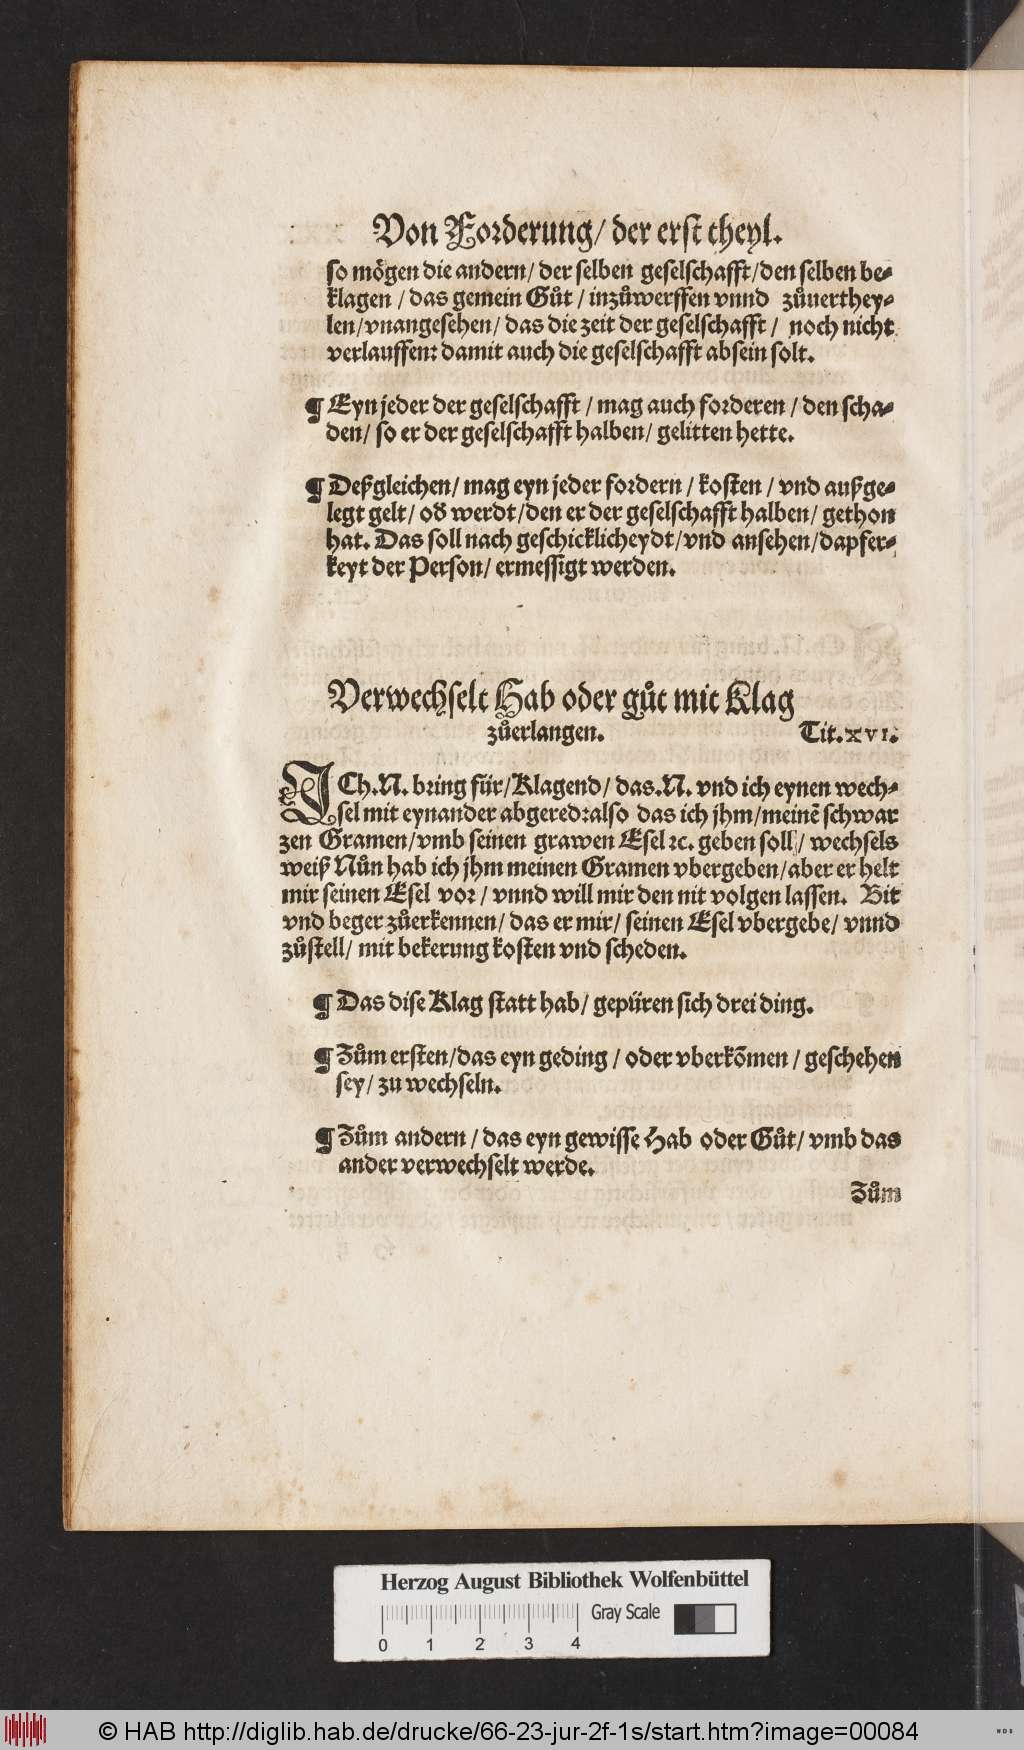 Von Forderung/ der erst theyl.
so mögen die andern/ der selben geselschafft/den selben be-
klagen / das gemein Gůt / inzůwerffen vnnd zůuerthey-
len/vnangesehen/ das die zeit der geselschafft / noch nicht
verlauffen: damit auch die geselschafft absein solt.
¶ Eyn jeder der geselschafft / mag auch forderen / den scha-
den/ so er der geselschafft halben/ gelitten hette.
¶ Deßgleichen/ mag eyn jeder fordern / kosten / vnd außge-
legt gelt/ oð werdt/den er der geselschafft halben/ gethon
hat. Das soll nach geschicklicheydt/vnd ansehen/dapfer-
keyt der Person/ ermessigt werden.
Verwechselt Hab oder gůt mit Klag
zůerlangen. Tit.xvi.
ICh.N. bring für/Klagend/ das.N. vnd ich eynen wech-
sel mit eynander abgered:also das ich jhm/meinẽ schwar
zen Gramen/vmb seinen grawen Esel ꝛc. geben soll/ wechsels
weiß Nůn hab ich jhm meinen Gramen vbergeben/aber er helt
mir seinen Esel vor / vnnd will mir den nit volgen lassen. Bit
vnd beger zůerkennen/ das er mir/ seinen Esel vbergebe/ vnnd
zůstell/ mit bekerung kosten vnd scheden.
¶ Das dise Klag statt hab/ gepüren sich drei ding.
¶ Zům ersten/das eyn geding / oder vberkõmen / geschehen
sey/ zu wechseln.
¶ Zům andern / das eyn gewisse Hab oder Gůt/ vmb das
ander verwechselt werde.
Zům
Herzog August Bibliothek Wolfenbüttel
Gray Scale
0 1 2 3 4
© HAB http://diglib.hab.de/drucke/66-23-jur-2f-1s/start.htm?image=00084
WDB